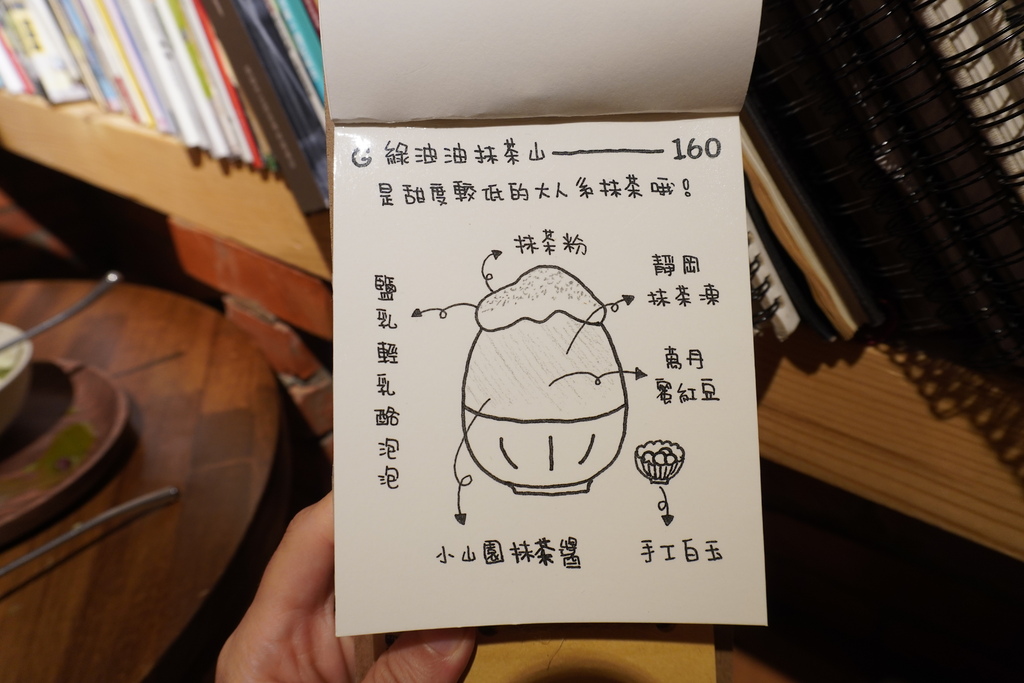 綠油油抹茶山 160
是甜度較低的大人系抹茶哦!
抹茶粉
靜岡
抹茶凍
鹽乳輕乳酪泡泡
萬丹
蜜紅豆
小山園抹茶醬
手工白玉